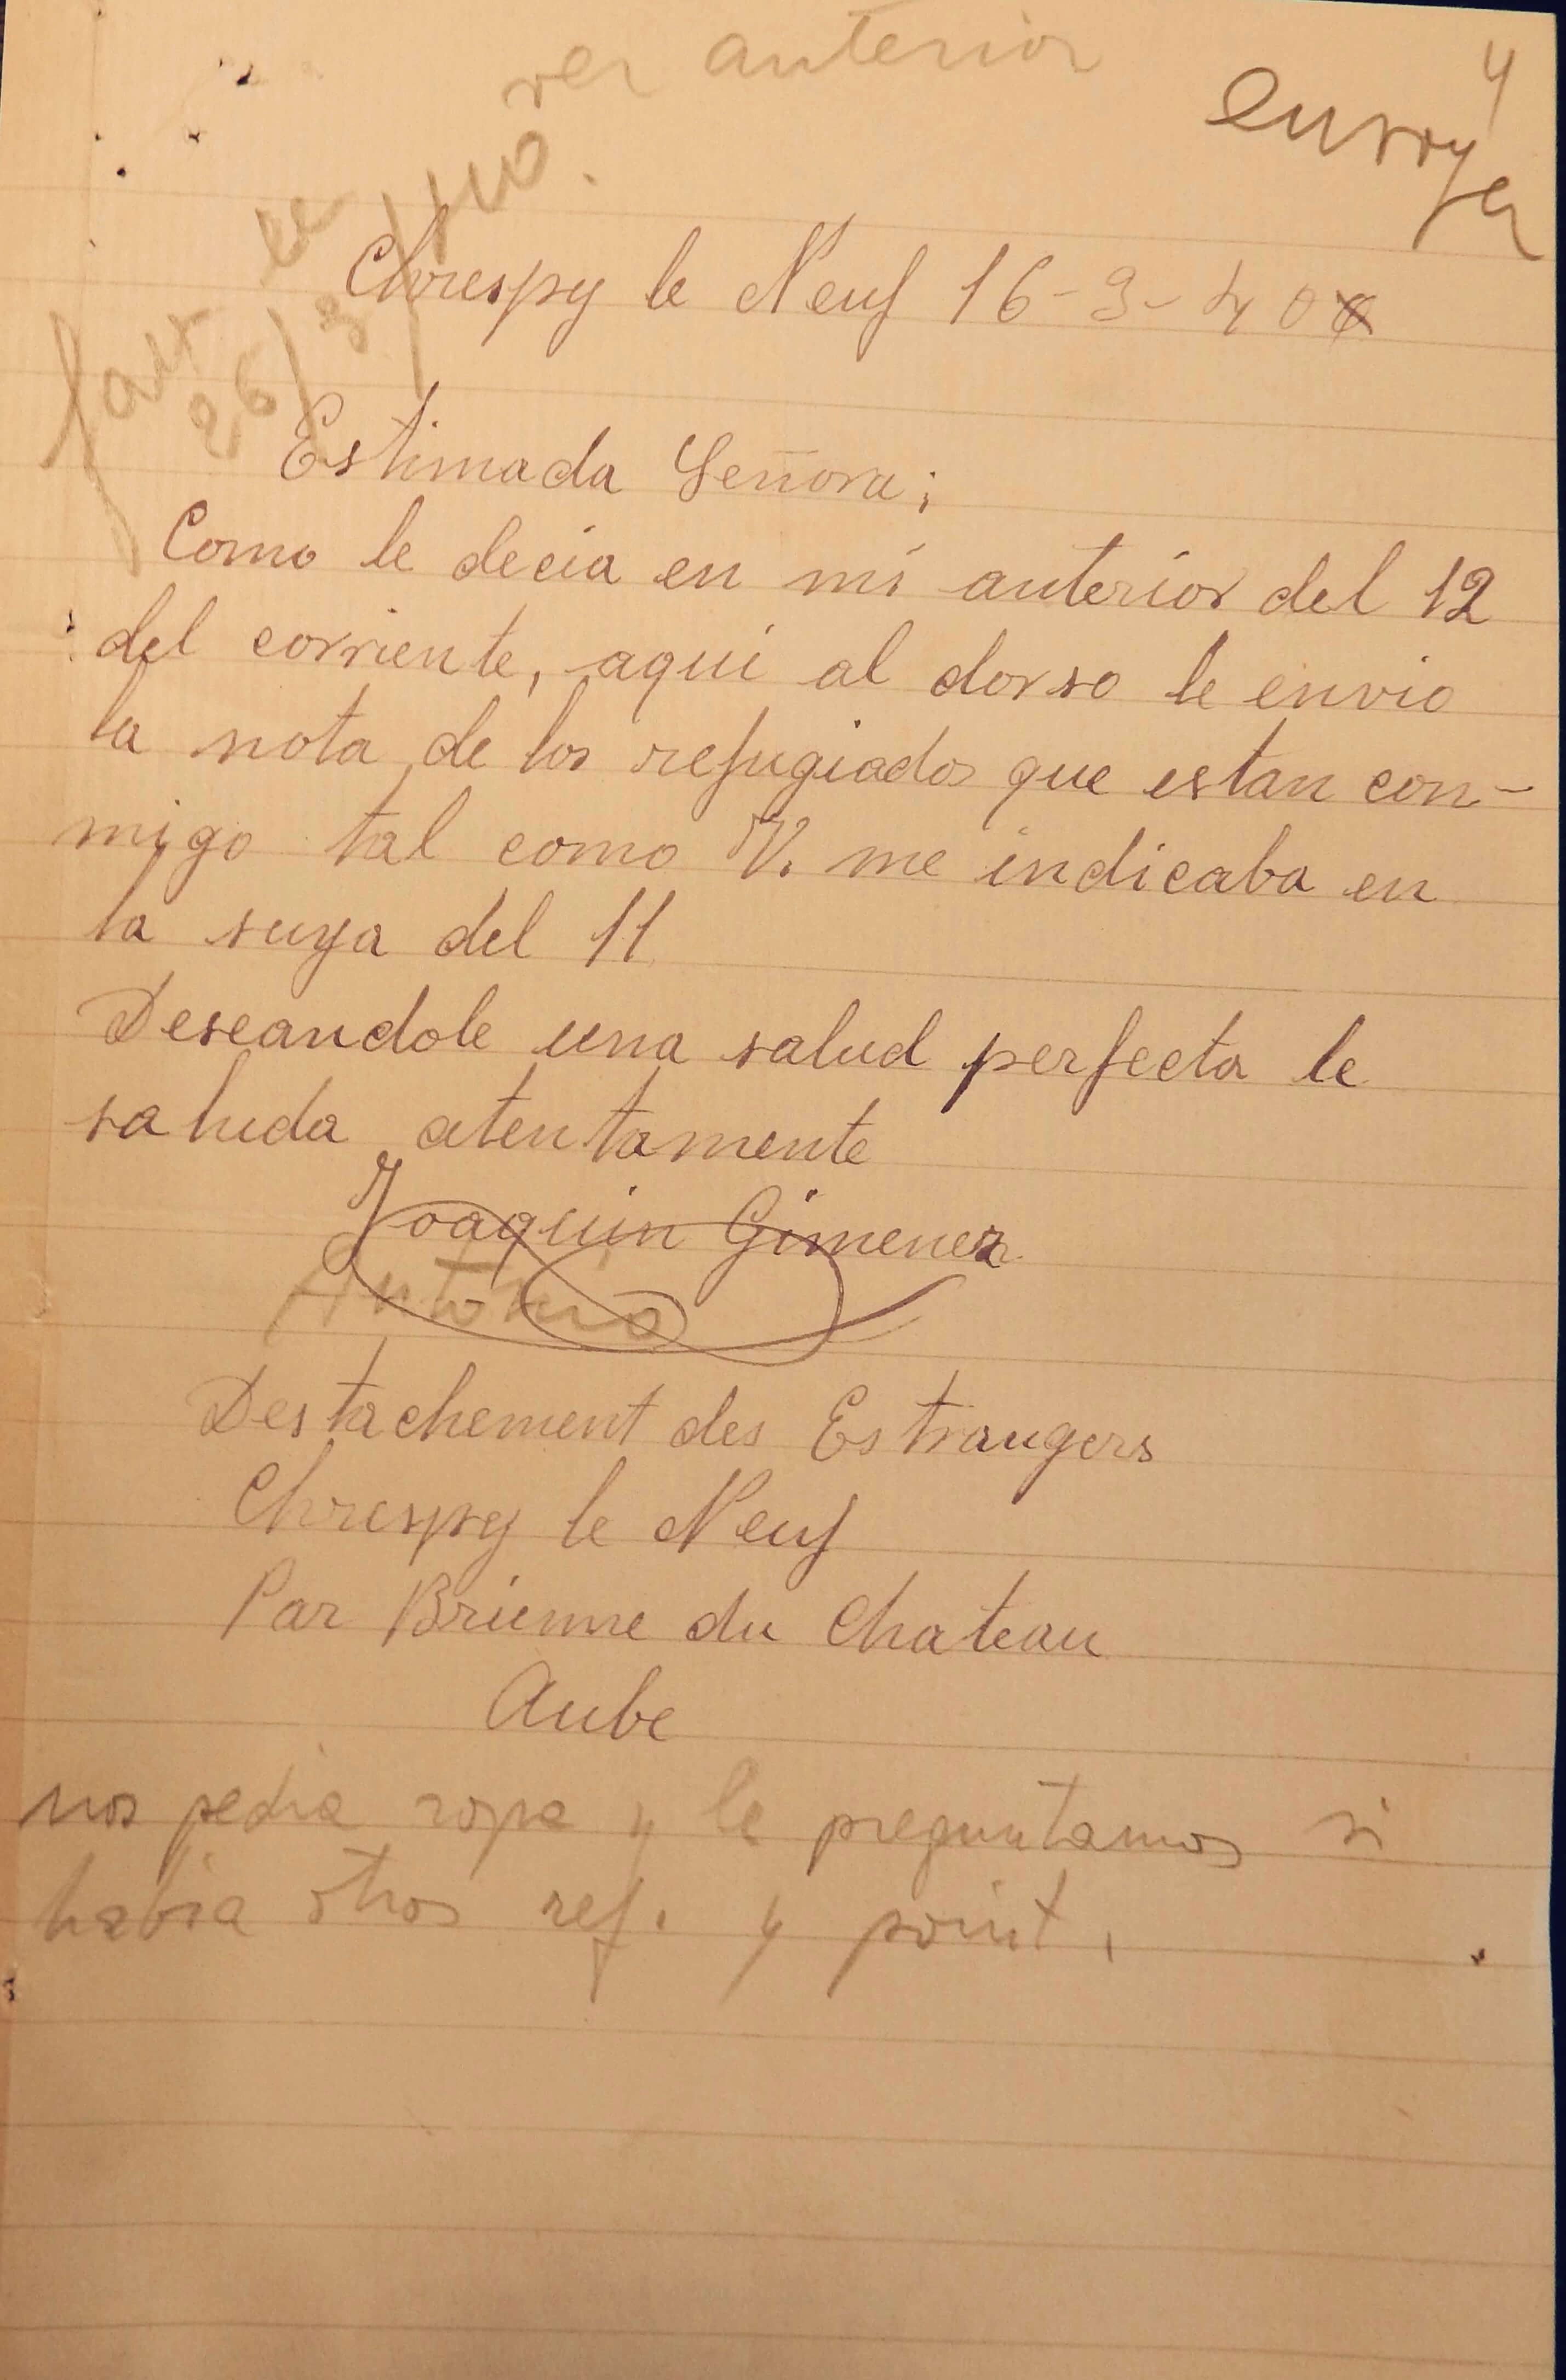 ver anterior
y
envoyer
fait le
26/3/40.
Chrespy le Neuf 16-3-40
Estimada Señora;
Como le decia en mi anterior del 12
del corriente, aqui al dorso le envio
la nota de los refugiados que estan con-
migo tal como V. me indicaba en
la suya del 11
Deseandole una salud perfecta le
saluda atentamente
Joaquin Gimenez
Antonio
Destachement des Estrangers
Chrespy le Neuf
Par Brienne du Chateau
Aube
nos pedia ropa y le preguntamos si
habia otros ref. y point.